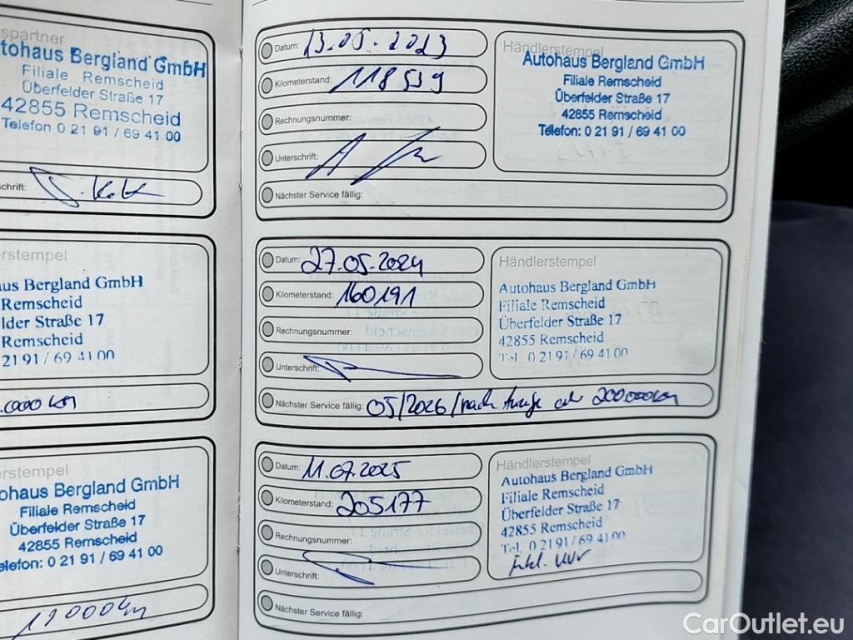 spartner
tohaus Bergland GmbH
Filiale Remscheid
Überfelder Straße 17
42855 Remscheid
Telefon 0 21 91 / 69 41 00
schrift:
erstempel
us Bergland GmbH
Remscheid
lder Straße 17
Remscheid
21 91 / 69 41 00
.000 km
erstempel
ohaus Bergland GmbH
Filiale Remscheid
Überfelder Straße 17
42855 Remscheid
elefon: 0 21 91 / 69 41 00
Datum: 13.05.2023
Kilometerstand: 118539
Rechnungsnummer:
Unterschrift:
Nächster Service fällig:
Händlerstempel
Autohaus Bergland GmbH
Filiale Remscheid
Überfelder Straße 17
42855 Remscheid
Telefon: 0 21 91 / 69 41 00
Datum: 27.05.2024
Kilometerstand: 160191
Rechnungsnummer:
Unterschrift:
Nächster Service fällig: 05/2026/nach
Händlerstempel
Autohaus Bergland GmbH
Filiale Remscheid
Überfelder Straße 17
42855 Remscheid
Tel. 0 21 91 / 69 41 00
Datum: 11.07.2025
Kilometerstand: 205177
Rechnungsnummer:
Unterschrift:
Nächster Service fällig:
Händlerstempel
Autohaus Bergland GmbH
Filiale Remscheid
Überfelder Straße 17
42855 Remscheid
Tel. 0 21 91 / 69 41 00
CarOutlet.eu